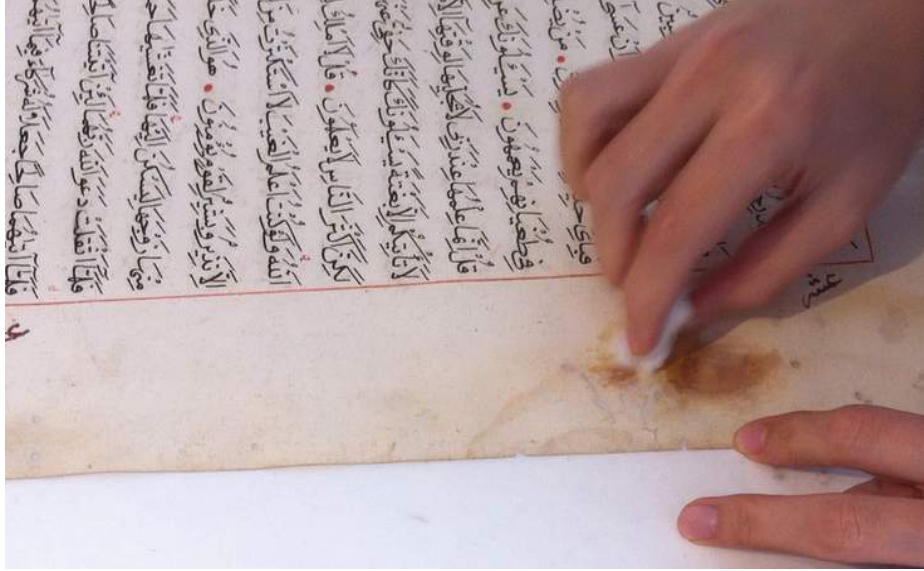 عشر
فَبِاَيِّ
فِي طُغْيَانِهِمْ يَعْمَهُونَ • يَسْئَلُونَكَ
قُلْ اِنَّمَا عِلْمُهَا عِنْدَ رَبِّي لَا يُجَلِّيهَا لِوَقْتِهَا
لَا تَأْتِيكُمْ اِلَّا بَغْتَةً يَسْئَلُونَكَ كَاَنَّكَ حَفِيٌّ
لٰكِنَّ اَكْثَرَ النَّاسِ لَا يَعْلَمُونَ • قُلْ لَا اَمْلِكُ
اللّٰهُ وَلَوْ كُنْتُ اَعْلَمُ الْغَيْبَ لَاسْتَكْثَرْتُ مِنَ
اِلَّا نَذِيرٌ وَبَشِيرٌ لِقَوْمٍ يُؤْمِنُونَ • هُوَ الَّذِي
مِنْهَا زَوْجَهَا لِيَسْكُنَ اِلَيْهَا فَلَمَّا تَغَشّٰيهَا
فَلَمَّا اَثْقَلَتْ دَعَوَا اللّٰهَ رَبَّهُمَا لَئِنْ اٰتَيْتَنَا
فَلَمَّا اٰتٰيهُمَا صَالِحًا جَعَلَا لَهُ شُرَكَاءَ فِيمَا